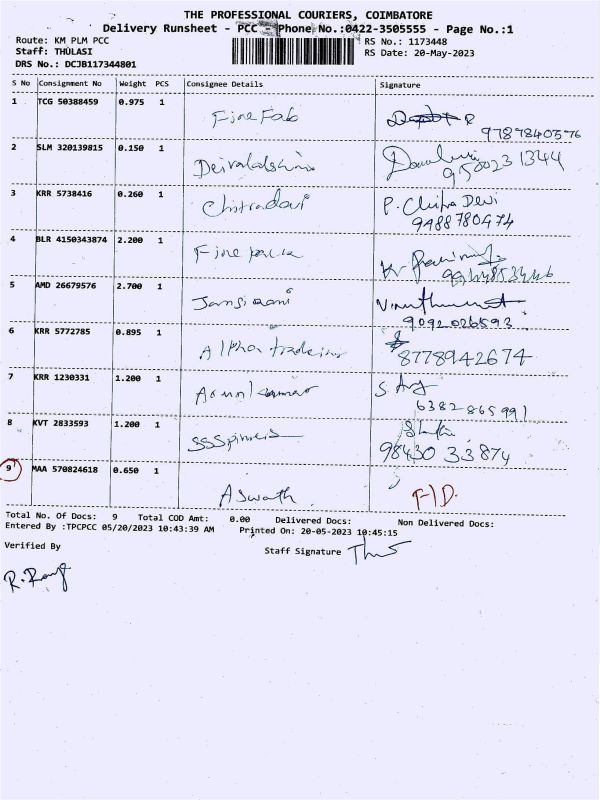 THE PROFESSIONAL COURIERS, COIMBATORE
Delivery Runsheet - PCC Phone No.:0422-3505555 - Page No.:1
Route: KM PLM PCC RS No.: 1173448
Staff: THULASI RS Date: 20-May-2023
DRS No.: DCJB117344801
S No Consignment No Weight PCS Consignee Details Signature
1 TCG 50388459 0.975 1 Fine Fab
9789840576
2 SLM 320139815 0.150 1
950023 1344
3 KRR 5738416 0.260 1 Chitradevi P. Chitra Devi
9488780474
4 BLR 4150343874 2.200 1
5 AMD 26679576 2.700 1 Jansirani
9092026593
6 KRR 5772785 0.895 1 Alpha
8778942674
7 KRR 1230331 1.200 1 Arunkumar
6382865991
8 KVT 2833593 1.200 1
98430 33874
9 MAA 570824618 0.650 1 Aswath F/D.
Total No. Of Docs: 9 Total COD Amt: 0.00 Delivered Docs: Non Delivered Docs:
Entered By :TPCPCC 05/20/2023 10:43:39 AM Printed On: 20-05-2023 10:45:15
Verified By Staff Signature